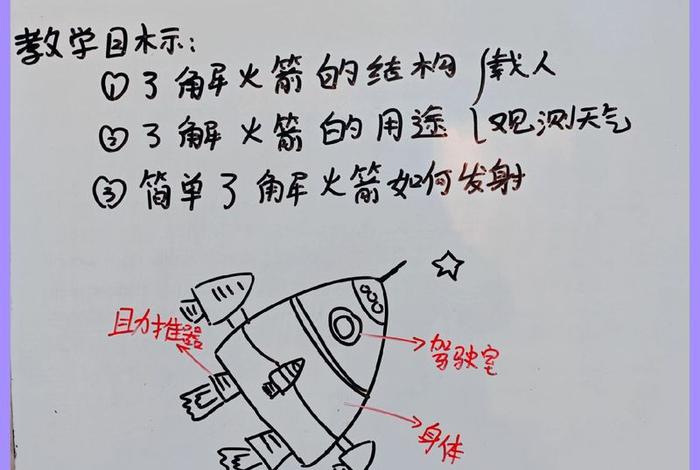 教学目标:
①了解火箭的结构 {载人
②了解火箭的用途 {观测天气
③简单了解火箭如何发射
助力推器
驾驶室
身体